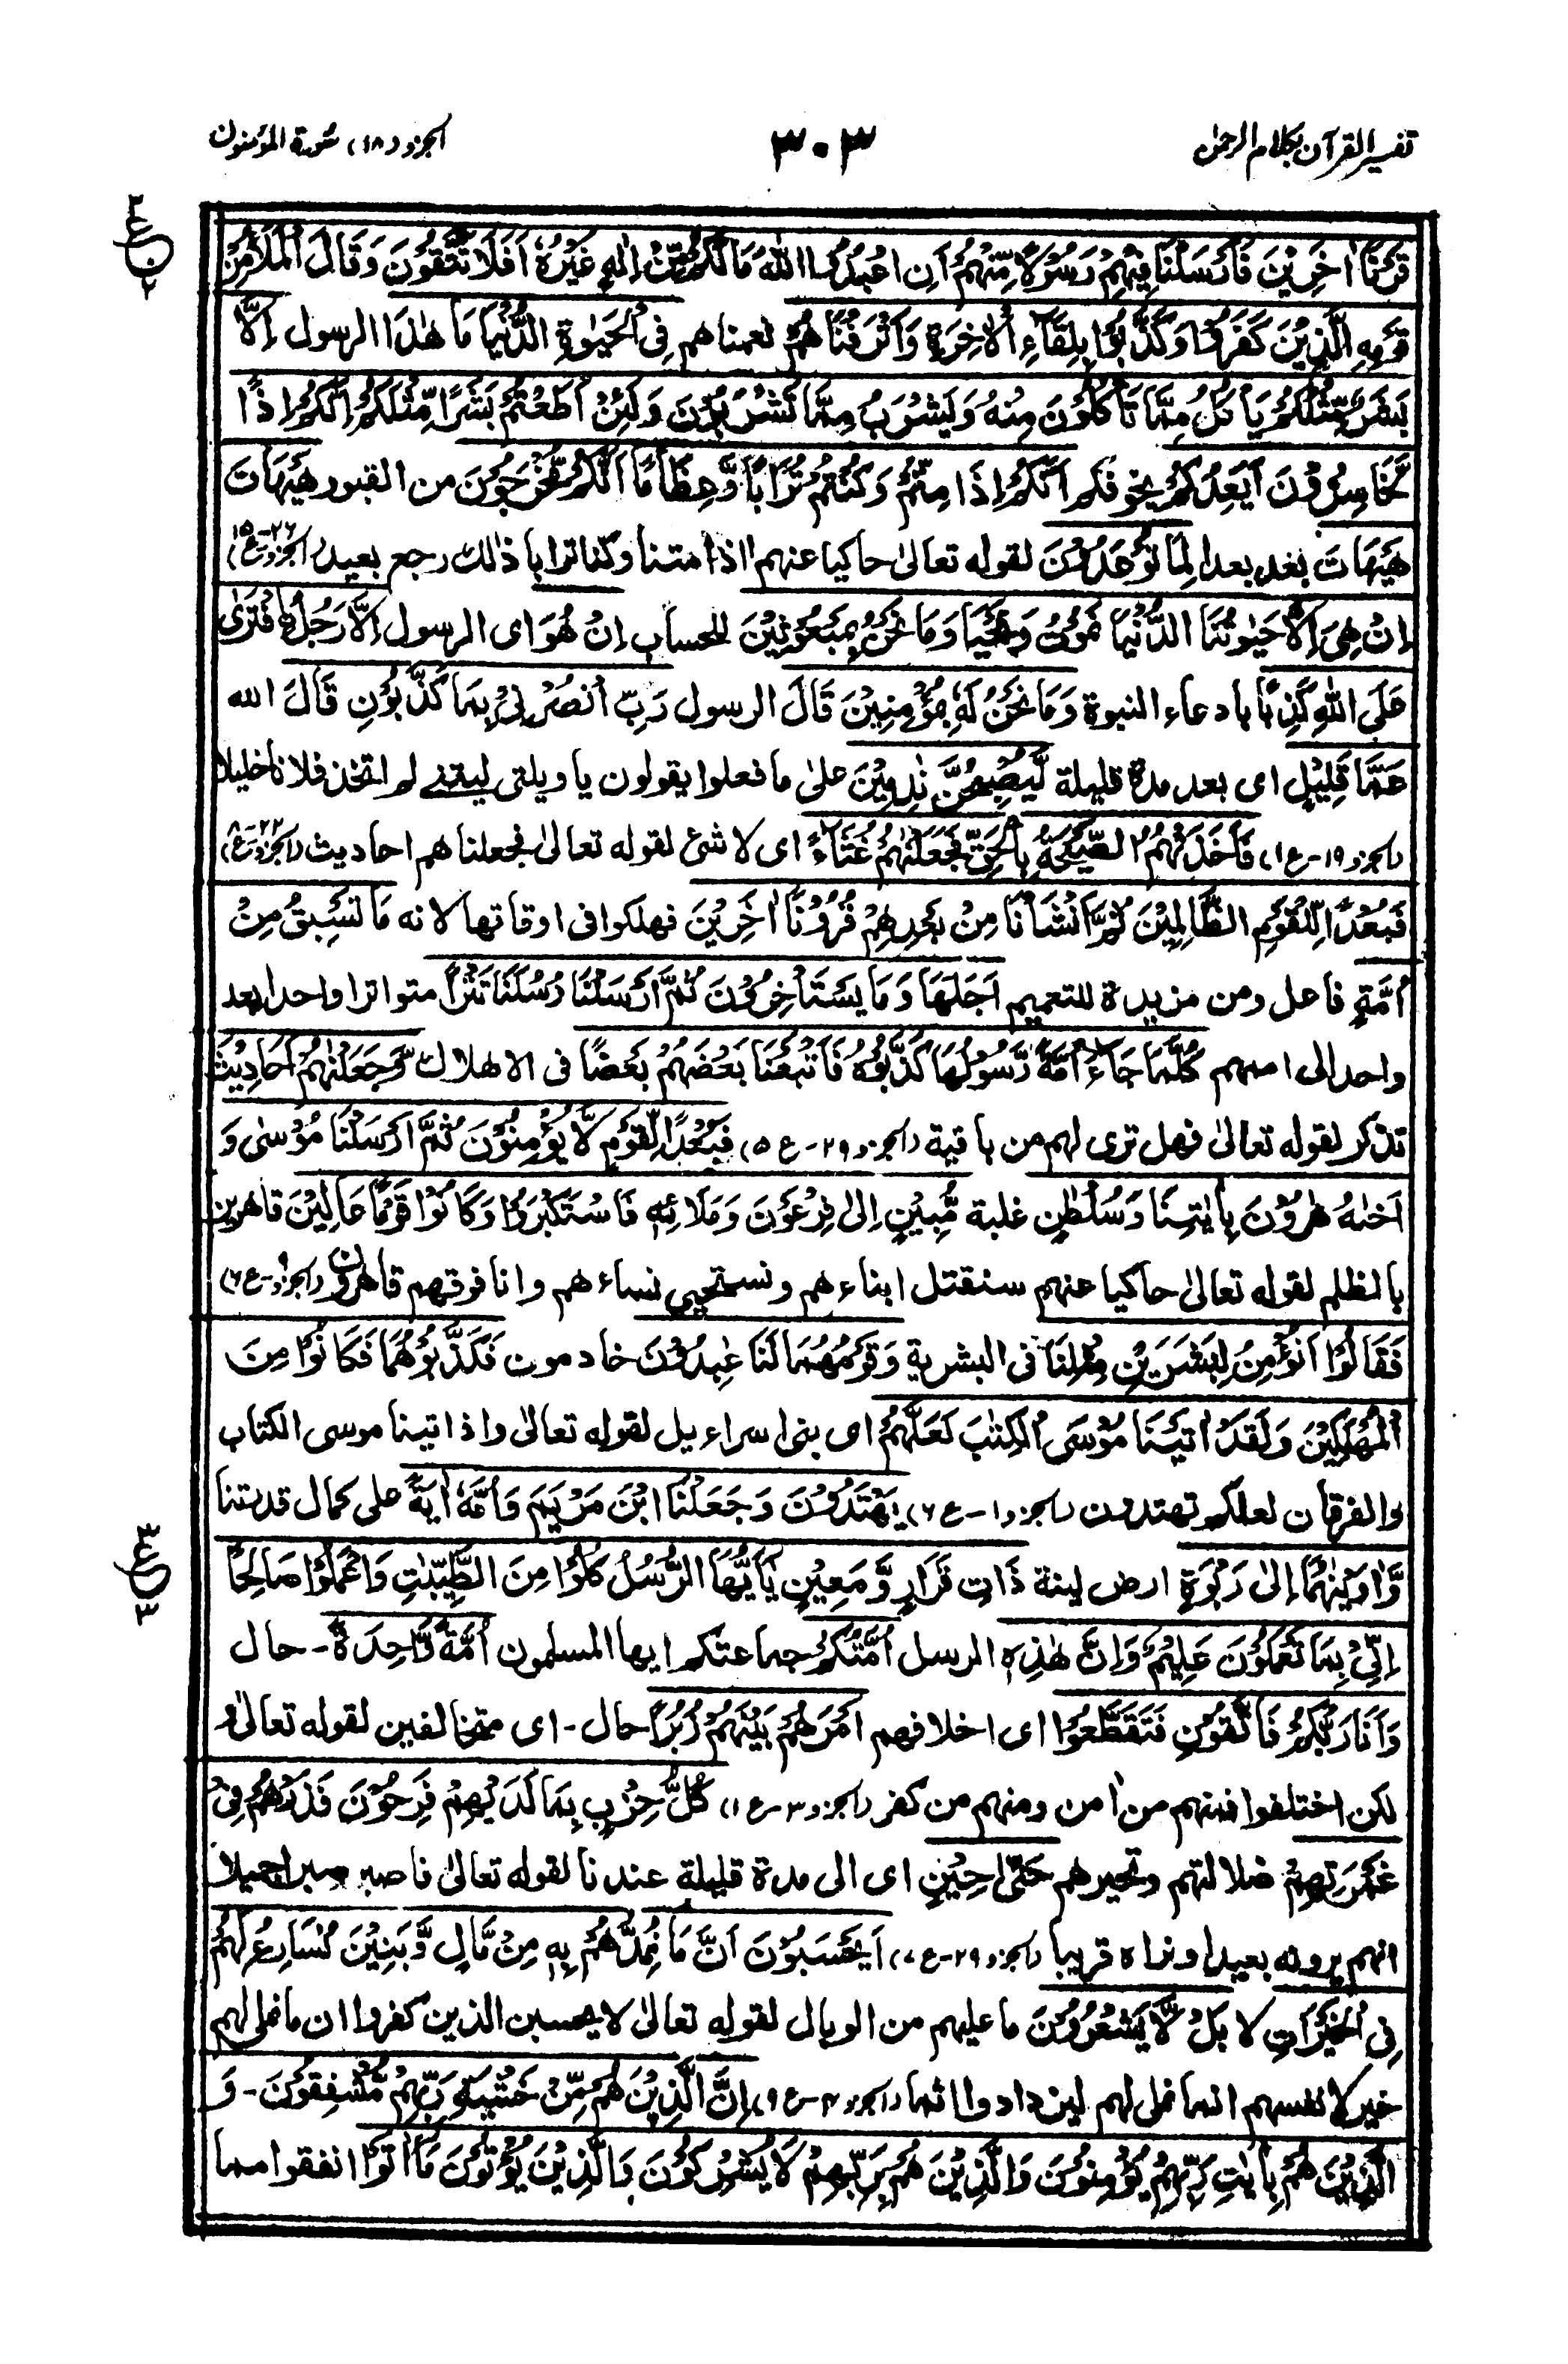 تفسير القرآن بكلام الرحمٰن
٣٠٣
الجزء (١٨) سورة المؤمنون
قَرْنًا اٰخَرِيْنَ فَاَرْسَلْنَا فِيْهِمْ رَسُوْلًا مِّنْهُمْ اَنِ اعْبُدُوا اللّٰهَ مَا لَكُمْ مِّنْ اِلٰهٍ غَيْرُهٗ اَفَلَا تَتَّقُوْنَ وَقَالَ الْمَلَاُ مِنْ
قَوْمِهِ الَّذِيْنَ كَفَرُوْا وَكَذَّبُوْا بِلِقَآءِ الْاٰخِرَةِ وَاَتْرَفْنَاهُمْ نعمناهم فِى الْحَيٰوةِ الدُّنْيَا مَا هٰذَا الرسول اِلَّا
بَشَرٌ مِّثْلُكُمْ يَاْكُلُ مِمَّا تَاْكُلُوْنَ مِنْهُ وَيَشْرَبُ مِمَّا تَشْرَبُوْنَ وَلَئِنْ اَطَعْتُمْ بَشَرًا مِّثْلَكُمْ اِنَّكُمْ اِذًا
لَّخَاسِرُوْنَ اَيَعِدُكُمْ يخوفكم اَنَّكُمْ اِذَا مِتُّمْ وَكُنْتُمْ تُرَابًا وَّعِظَامًا اَنَّكُمْ مُّخْرَجُوْنَ من القبور هَيْهَاتَ
هَيْهَاتَ بعد بعدا لِمَا تُوْعَدُوْنَ لقوله تعالىٰ حاكيا عنهم ااذا متنا وكنا ترابا ذلك رجع بعيد (الجزو ٢٦-ع١٥)
اِنْ هِىَ اِلَّا حَيٰوتُنَا الدُّنْيَا نَمُوْتُ وَنَحْيَا وَمَا نَحْنُ بِمَبْعُوْثِيْنَ للحساب اِنْ هُوَ اى الرسول اِلَّا رَجُلُ اِفْتَرٰى
عَلَى اللّٰهِ كَذِبًا بادعاء النبوة وَمَا نَحْنُ لَهٗ بِمُؤْمِنِيْنَ قَالَ الرسول رَبِّ انْصُرْنِىْ بِمَا كَذَّبُوْنِ قَالَ الله
عَمَّا قَلِيْلٍ اى بعد مدة قليلة لَّيُصْبِحُنَّ نٰدِمِيْنَ علىٰ ما فعلوا يقولون يا ويلتى ليتنى لم اتخذ فلانا خليلا
(الجزو ١٩-ع١) فَاَخَذَتْهُمُ الصَّيْحَةُ بِالْحَقِّ فَجَعَلْنٰهُمْ غُثَآءً اى لا شئ لقوله تعالىٰ فجعلناهم احاديث (الجزو ٢٢-ع٨)
فَبُعْدًا لِّلْقَوْمِ الظَّالِمِيْنَ ثُمَّ اَنْشَاْنَا مِنْ بَعْدِهِمْ قُرُوْنًا اٰخَرِيْنَ فهلكوا فى اوقاتها لانه مَا تَسْبِقُ مِنْ
اُمَّةٍ فاعل ومن مزيدة للتعميم اَجَلَهَا وَمَا يَسْتَاْخِرُوْنَ ثُمَّ اَرْسَلْنَا رُسُلَنَا تَتْرًا متواترا واحدا بعد
واحد الى اممهم كُلَّمَا جَآءَ اُمَّةً رَّسُوْلُهَا كَذَّبُوْهُ فَاَتْبَعْنَا بَعْضَهُمْ بَعْضًا فى الاهلاك وَّجَعَلْنٰهُمْ اَحَادِيْثَ
تذكر لقوله تعالىٰ فهل ترى لهم من باقية (الجزو ٢٩-ع٥) فَبُعْدًا لِّقَوْمٍ لَّا يُؤْمِنُوْنَ ثُمَّ اَرْسَلْنَا مُوْسٰى وَ
اَخٰاهُ هٰرُوْنَ بِاٰيٰتِنَا وَسُلْطٰنٍ غلبة مُّبِيْنٍ اِلٰى فِرْعَوْنَ وَمَلَائِهٖ فَاسْتَكْبَرُوْا وَكَانُوْا قَوْمًا عَالِيْنَ قاهرين
بالظلم لقوله تعالىٰ حاكيا عنهم سنقتل ابناءهم ونستحيى نساءهم وانا فوقهم قاهرون (الجزو ٩-ع٦)
فَقَالُوْا اَنُؤْمِنُ لِبَشَرَيْنِ مِثْلِنَا فى البشرية وَقَوْمُهُمَا لَنَا عٰبِدُوْنَ خادمون فَكَذَّبُوْهُمَا فَكَانُوْا مِنَ
الْمُهْلَكِيْنَ وَلَقَدْ اٰتَيْنَا مُوْسَى الْكِتٰبَ لَعَلَّهُمْ اى بنى اسراءيل لقوله تعالىٰ واذ اتينا موسى الكتاب
والفرقان لعلكم تهتدون (الجزو ١-ع٦) يَهْتَدُوْنَ وَجَعَلْنَا ابْنَ مَرْيَمَ وَاُمَّهٗ اٰيَةً على كمال قدرتنا
وَّاٰوَيْنٰهُمَا اِلٰى رَبْوَةٍ ارض لينة ذَاتِ قَرَارٍ وَّمَعِيْنٍ يٰاَيُّهَا الرُّسُلُ كُلُوْا مِنَ الطَّيِّبٰتِ وَاعْمَلُوْا صَالِحًا
اِنِّىْ بِمَا تَعْمَلُوْنَ عَلِيْمٌ وَاِنَّ هٰذِهٖ الرسل اُمَّتُكُمْ جماعتكم ايها المسلمون اُمَّةً وَّاحِدَةً - حال
وَاَنَا رَبُّكُمْ فَاتَّقُوْنِ فَتَقَطَّعُوْا اى اخلافهم اَمْرَهُمْ بَيْنَهُمْ زُبُرًا حال - اى متخالفين لقوله تعالىٰ و
لكن اختلفوا فمنهم من اٰمن ومنهم من كفر (الجزو ٣-ع١) كُلُّ حِزْبٍ بِمَا لَدَيْهِمْ فَرِحُوْنَ فَذَرْهُمْ فِىْ
غَمْرَتِهِمْ ضلالتهم وتحيرهم حَتّٰى حِيْنٍ اى الى مدة قليلة عندنا لقوله تعالىٰ فاصبر صبرا جميلا
انهم يرونه بعيدا ونراه قريبا (الجزو ٢٩-ع٧) اَيَحْسَبُوْنَ اَنَّ مَا نُمِدُّهُمْ بِهٖ مِنْ مَّالٍ وَّبَنِيْنَ نُسَارِعُ لَهُمْ
فِى الْخَيْرَاتِ لا بَلْ لَّا يَشْعُرُوْنَ ما عليهم من الوبال لقوله تعالىٰ لا يحسبن الذين كفروا ان ما نملى لهم
خير لانفسهم انما نملى لهم ليزدادوا اثما (الجزو ٤-ع٩) اِنَّ الَّذِيْنَ هُمْ مِّنْ خَشْيَةِ رَبِّهِمْ مُّشْفِقُوْنَ - وَ
الَّذِيْنَ هُمْ بِاٰيٰتِ رَبِّهِمْ يُؤْمِنُوْنَ وَالَّذِيْنَ هُمْ بِرَبِّهِمْ لَا يُشْرِكُوْنَ وَالَّذِيْنَ يُؤْتُوْنَ مَا اٰتَوْا انفقوا مما